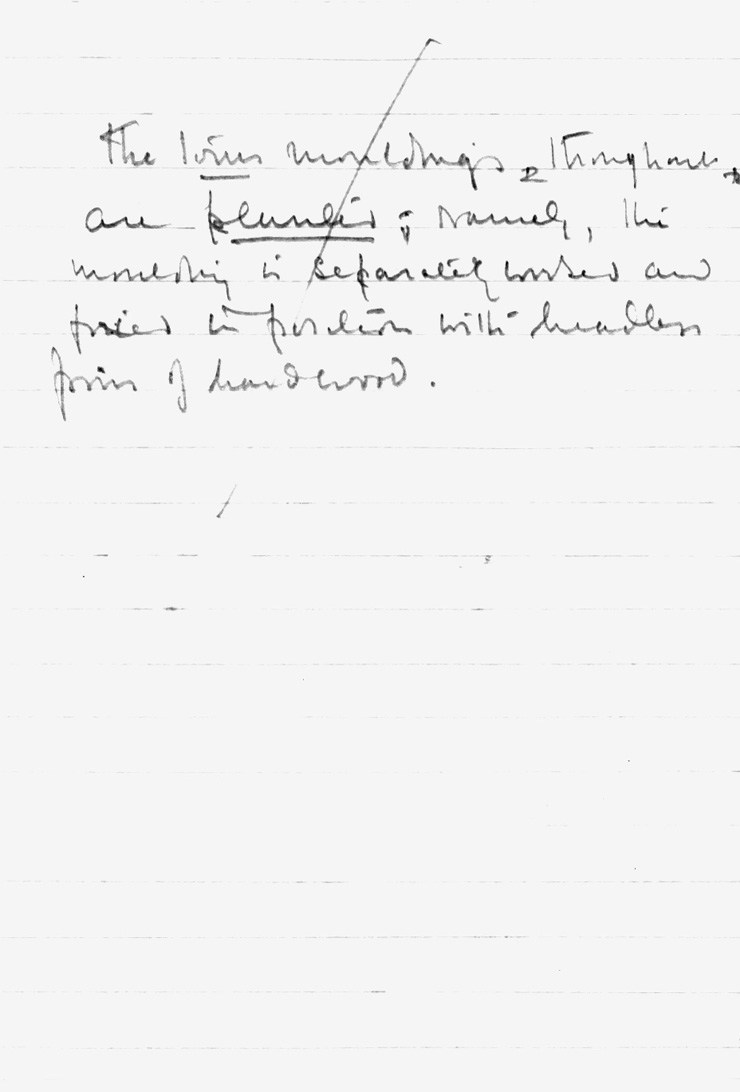 The torus mouldings, throughout,
are planted; namely, the
moulding is separately worked and
fixed in position with headless
pins of hardwood.